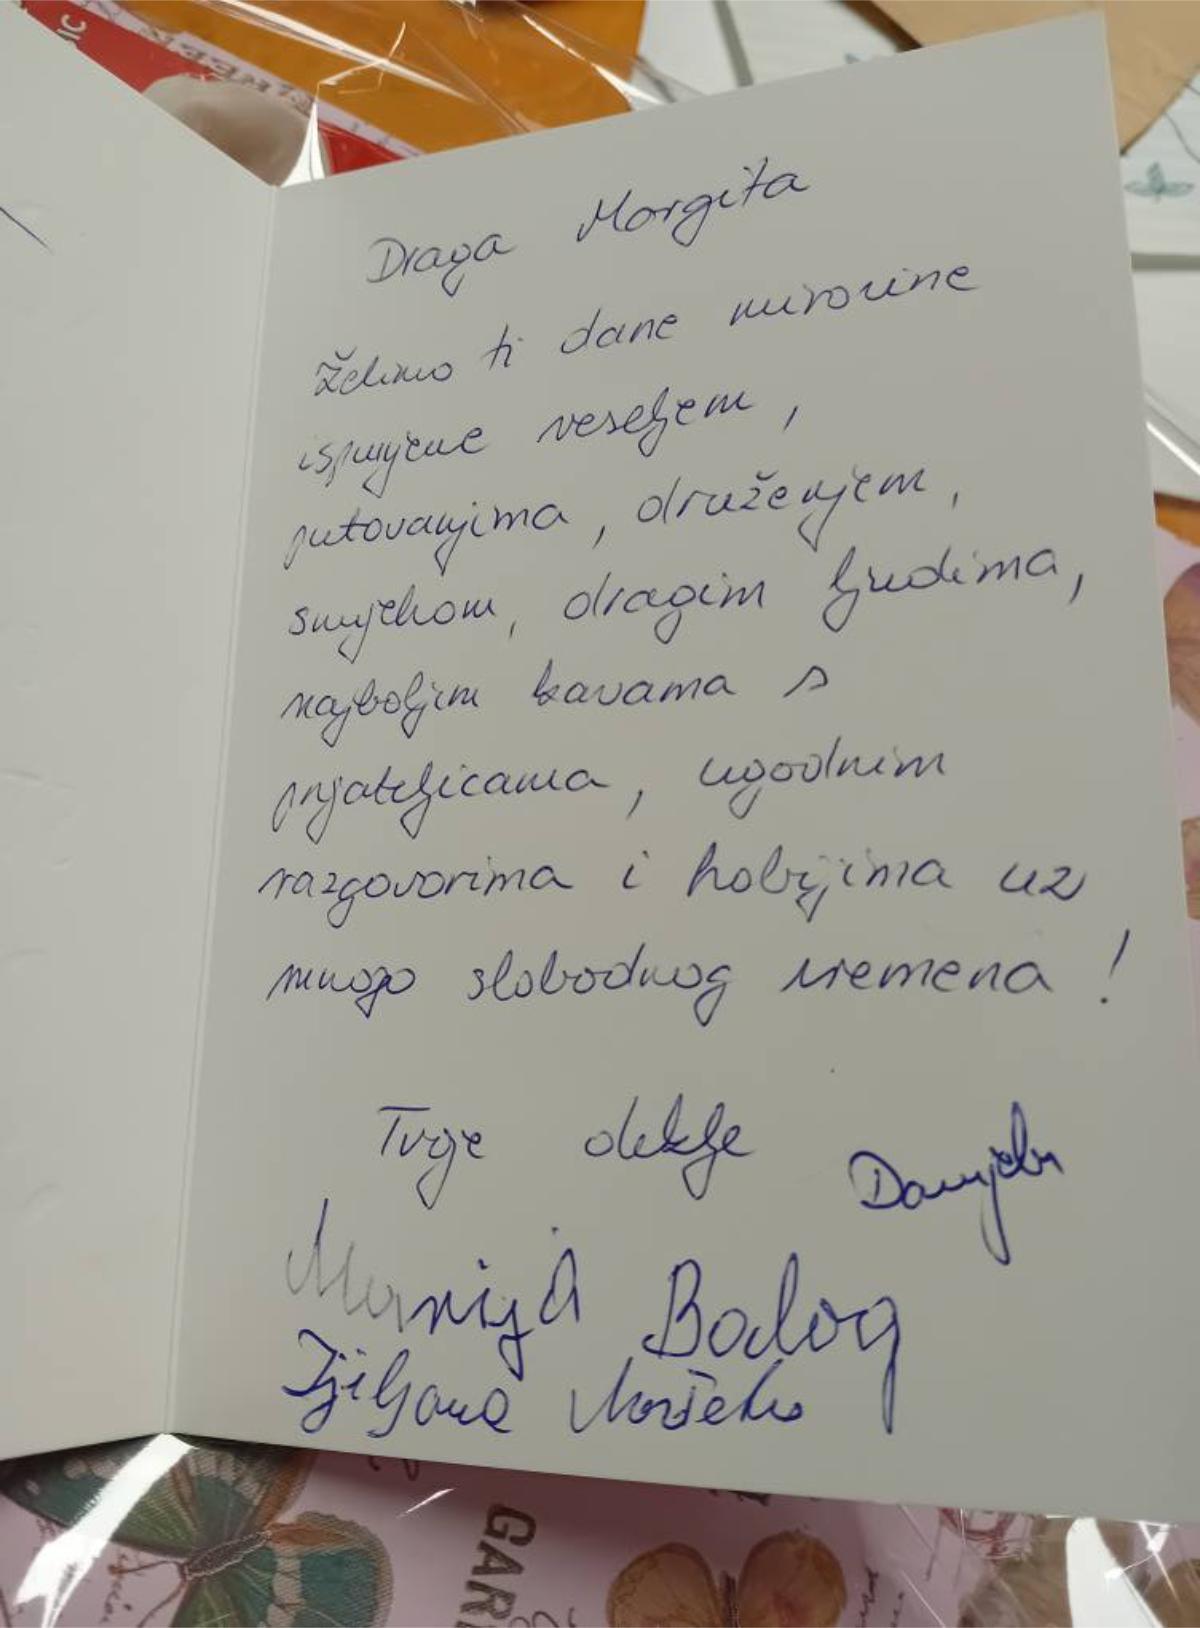 IC
Draga Margita
Želimo ti dane mirovine
ispunjene veseljem,
putovanjima, druženjem,
smijehom, dragim ljudima,
najboljim kavama s
prijateljicama, ugodnim
razgovorima i hobijima uz
mnogo slobodnog vremena!
Tvoje dekle
Danijela
Marija Balog
Ljiljana
GAR